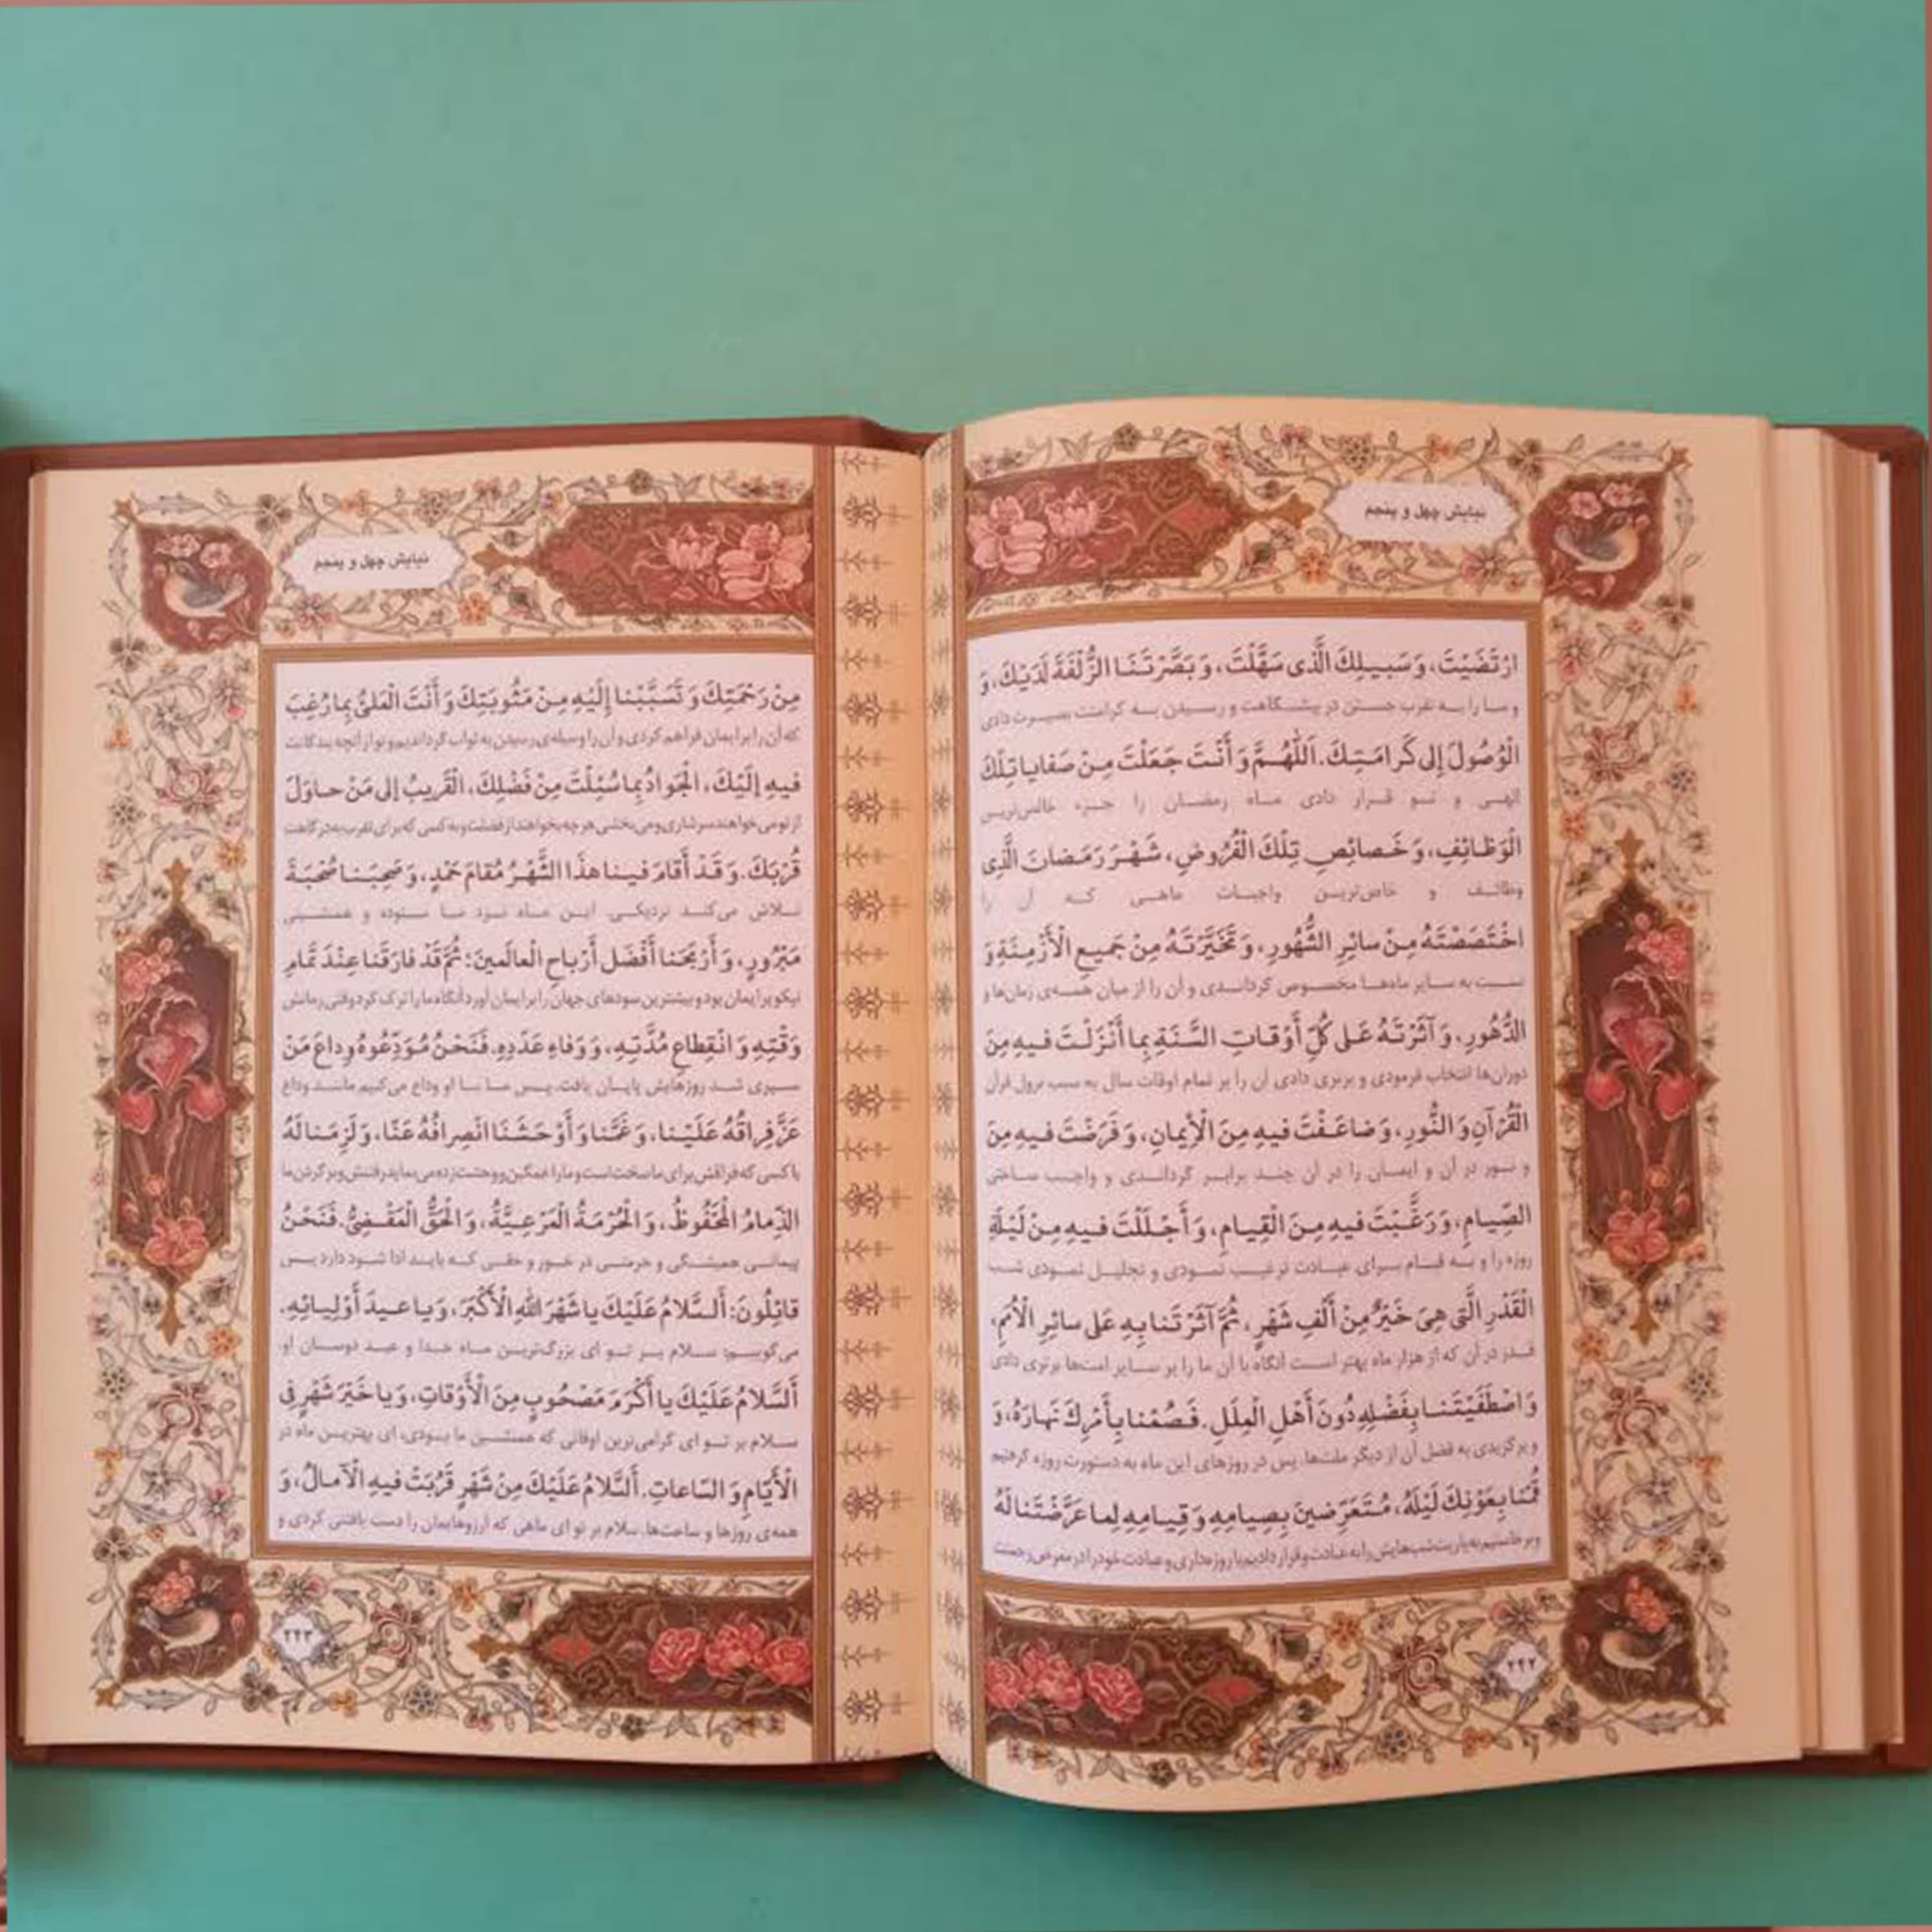 نیایش چهل و پنجم
ارْتَضَيْتَ، وَ سَبيلِكَ الَّذي سَهَّلْتَ، وَ بَصَّرْتَنَا الزُّلْفَةَ لَدَيْكَ، وَ
و ما را به تقرب جستن در پیشگاهت و رسیدن به کرامتت بصیرت دادی
الْوُصُولَ إِلى كَرامَتِكَ. اَللّٰهُمَّ وَ أَنْتَ جَعَلْتَ مِنْ صَفايا تِلْكَ
الهی و تو قرار دادی ماه رمضان را جزء خالص‌ترین
الْوَظائِفِ، وَ خَصائِصِ تِلْكَ الْفُرُوضِ، شَهْرَ رَمَضانَ الَّذِي
وظائف و خاص‌ترین واجبات ماهی که آن را
اخْتَصَصْتَهُ مِنْ سائِرِ الشُّهُورِ، وَ تَخَيَّرْتَهُ مِنْ جَميعِ الْأَزْمِنَةِ وَ
نسبت به سایر ماه‌ها مخصوص گرداندی و آن را از میان همه‌ی زمان‌ها و
الدُّهُورِ، وَ آثَرْتَهُ عَلى كُلِّ أَوْقاتِ السَّنَةِ بِما أَنْزَلْتَ فيهِ مِنَ
دوران‌ها انتخاب فرمودی و برتری دادی آن را بر تمام اوقات سال به سبب نزول قرآن
الْقُرْآنِ وَ النُّورِ، وَ ضاعَفْتَ فيهِ مِنَ الْإيمانِ، وَ فَرَضْتَ فيهِ مِنَ
و نور در آن و ایمان را در آن چند برابر گرداندی و واجب ساختی
الصِّيامِ، وَ رَغَّبْتَ فيهِ مِنَ الْقِيامِ، وَ أَجْلَلْتَ فيهِ مِنْ لَيْلَةِ
روزه را و به قیام برای عبادت ترغیب نمودی و تجلیل نمودی شب
الْقَدْرِ الَّتي هِيَ خَيْرٌ مِنْ أَلْفِ شَهْرٍ، ثُمَّ آثَرْتَنا بِهِ عَلى سائِرِ الْأُمَمِ،
قدر در آن که از هزار ماه بهتر است آنگاه با آن ما را بر سایر امت‌ها برتری دادی
وَ اصْطَفَيْتَنا بِفَضْلِهِ دُونَ أَهْلِ الْمِلَلِ. فَصُمْنا بِأَمْرِكَ نَهارَهُ، وَ
و برگزیدی به فضل آن از دیگر ملت‌ها. پس در روزهای این ماه به دستورت روزه گرفتیم
قُمْنا بِعَوْنِكَ لَيْلَهُ، مُتَعَرِّضينَ بِصِيامِهِ وَ قِيامِهِ لِما عَرَّضْتَنا لَهُ
و برخاستیم به یاریت شب‌هایش را به عبادت و قرار دادیم با روزه‌داری و عبادت خود را در معرض رحمتت
۲۴۲
نیایش چهل و پنجم
مِنْ رَحْمَتِكَ وَ تَسَبَّبْنا إِلَيْهِ مِنْ مَثُوبَتِكَ وَ أَنْتَ الْمَليُّ بِما رُغِبَ
که آن را برایمان فراهم کردی و آن را وسیله‌ی رسیدن به ثواب گرداندیم و تو از آنچه بندگانت
فيهِ إِلَيْكَ، الْجَوادُ بِما سُئِلْتَ مِنْ فَضْلِكَ، الْقَريبُ إِلى مَنْ حاوَلَ
از تو می‌خواهند سرشاری و می‌بخشی هر چه بخواهند از فضلت و به کسی که برای تقرب به درگاهت
قُرْبَكَ. وَ قَدْ أَقامَ فينا هذَا الشَّهْرُ مُقامَ حَمْدٍ، وَ صَحِبَنا صُحْبَةَ
تلاش می‌کند نزدیکی. این ماه نزد ما ستوده و همنشینی
مَبْرُورٍ، وَ أَرْبَحَنا أَفْضَلَ أَرْباحِ الْعالَمينَ؛ ثُمَّ قَدْ فارَقَنا عِنْدَ تَمامِ
نیکو برایمان بود و بیشترین سودهای جهان را برایمان آورد آنگاه ما را ترک کرد وقتی زمانش
وَقْتِهِ وَ انْقِطاعِ مُدَّتِهِ، وَ وَفاءِ عَدَدِهِ. فَنَحْنُ مُوَدِّعُوهُ وِداعَ مَنْ
سپری شد روزهایش پایان یافت. پس ما با او وداع می‌کنیم مانند وداع
عَزَّ فِراقُهُ عَلَيْنا، وَ غَمَّنا وَ أَوْحَشَنَا انْصِرافُهُ عَنّا، وَ لَزِمَنا لَهُ
با کسی که فراقش برای ما سخت است و ما را غمگین و وحشت‌زده می‌نماید رفتنش و بر گردن ما
الذِّمامُ الْمَحْفُوظُ، وَ الْحُرْمَةُ الْمَرْعِيَّةُ، وَ الْحَقُّ الْمَقْضِيُّ. فَنَحْنُ
پیمانی همیشگی و حرمتی در خور و حقی که باید ادا شود دارد پس
قائِلُونَ: أَلسَّلامُ عَلَيْكَ يا شَهْرَ اللهِ الْأَكْبَرَ، وَ يا عيدَ أَوْلِيائِهِ.
می‌گوییم: سلام بر تو ای بزرگ‌ترین ماه خدا و عید دوستان او.
أَلسَّلامُ عَلَيْكَ يا أَكْرَمَ مَصْحُوبٍ مِنَ الْأَوْقاتِ، وَ يا خَيْرَ شَهْرٍ فِي
سلام بر تو ای گرامی‌ترین اوقاتی که همنشین ما بودی، ای بهترین ماه در
الْأَيّامِ وَ السّاعاتِ. أَلسَّلامُ عَلَيْكَ مِنْ شَهْرٍ قَرُبَتْ فيهِ الْآمالُ، وَ
همه‌ی روزها و ساعت‌ها. سلام بر تو ای ماهی که آرزوهایمان را دست یافتنی کردی و
۲۴۳